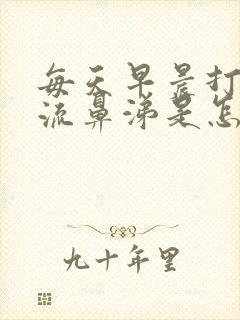 每天早晨打
流鼻涕是怎
九十年里